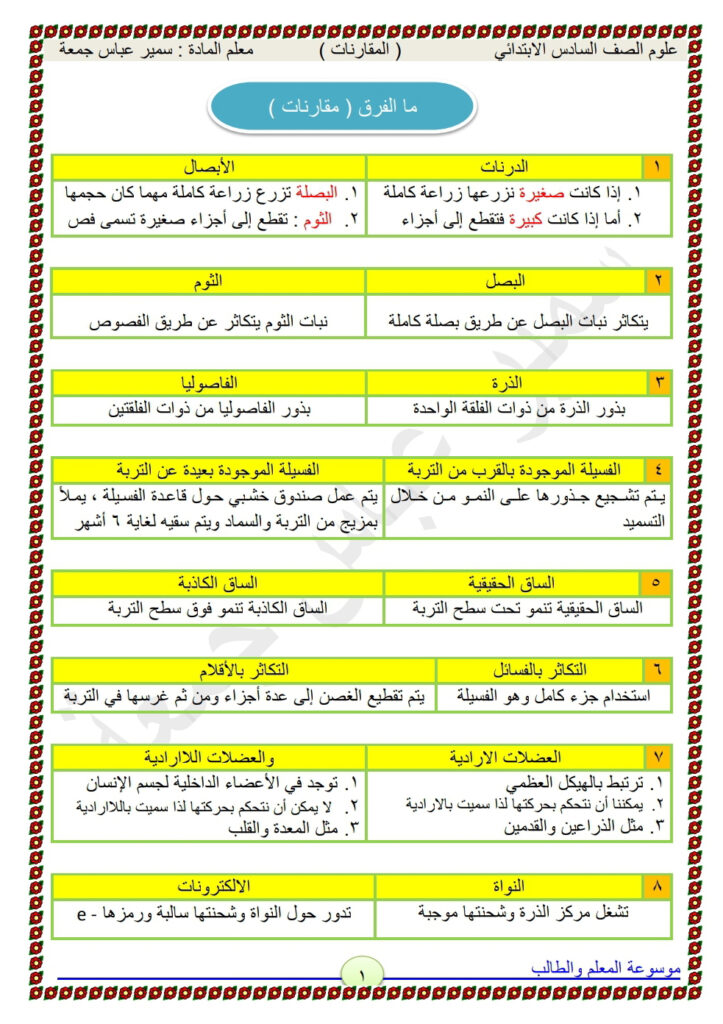 علوم الصف السادس الابتدائي ( المقارنات ) معلم المادة : سمير عباس جمعة
ما الفرق ( مقارنات )
١ الدرنات الأبصال
١. إذا كانت صغيرة نزرعها زراعة كاملة
٢. أما إذا كانت كبيرة فتقطع إلى أجزاء
١. البصلة تزرع زراعة كاملة مهما كان حجمها
٢. الثوم : تقطع إلى أجزاء صغيرة تسمى فص
٢ البصل الثوم
يتكاثر نبات البصل عن طريق بصلة كاملة
نبات الثوم يتكاثر عن طريق الفصوص
٣ الذرة الفاصوليا
بذور الذرة من ذوات الفلقة الواحدة
بذور الفاصوليا من ذوات الفلقتين
٤ الفسيلة الموجودة بالقرب من التربة الفسيلة الموجودة بعيدة عن التربة
يتم تشجيع جذورها على النمو من خلال
التسميد
يتم عمل صندوق خشبي حول قاعدة الفسيلة ، يملأ
بمزيج من التربة والسماد ويتم سقيه لغاية ٦ أشهر
٥ الساق الحقيقية الساق الكاذبة
الساق الحقيقية تنمو تحت سطح التربة
الساق الكاذبة تنمو فوق سطح التربة
٦ التكاثر بالفسائل التكاثر بالأقلام
استخدام جزء كامل وهو الفسيلة
يتم تقطيع الغصن إلى عدة أجزاء ومن ثم غرسها في التربة
٧ العضلات الارادية والعضلات اللاارادية
١. ترتبط بالهيكل العظمي
٢. يمكننا أن نتحكم بحركتها لذا سميت بالارادية
٣. مثل الذراعين والقدمين
١. توجد في الأعضاء الداخلية لجسم الإنسان
٢. لا يمكن أن نتحكم بحركتها لذا سميت باللاارادية
٣. مثل المعدة والقلب
٨ النواة الالكترونات
تشغل مركز الذرة وشحنتها موجبة
تدور حول النواة وشحنتها سالبة ورمزها - e
موسوعة المعلم والطالب
١
سمير عباس جمعة